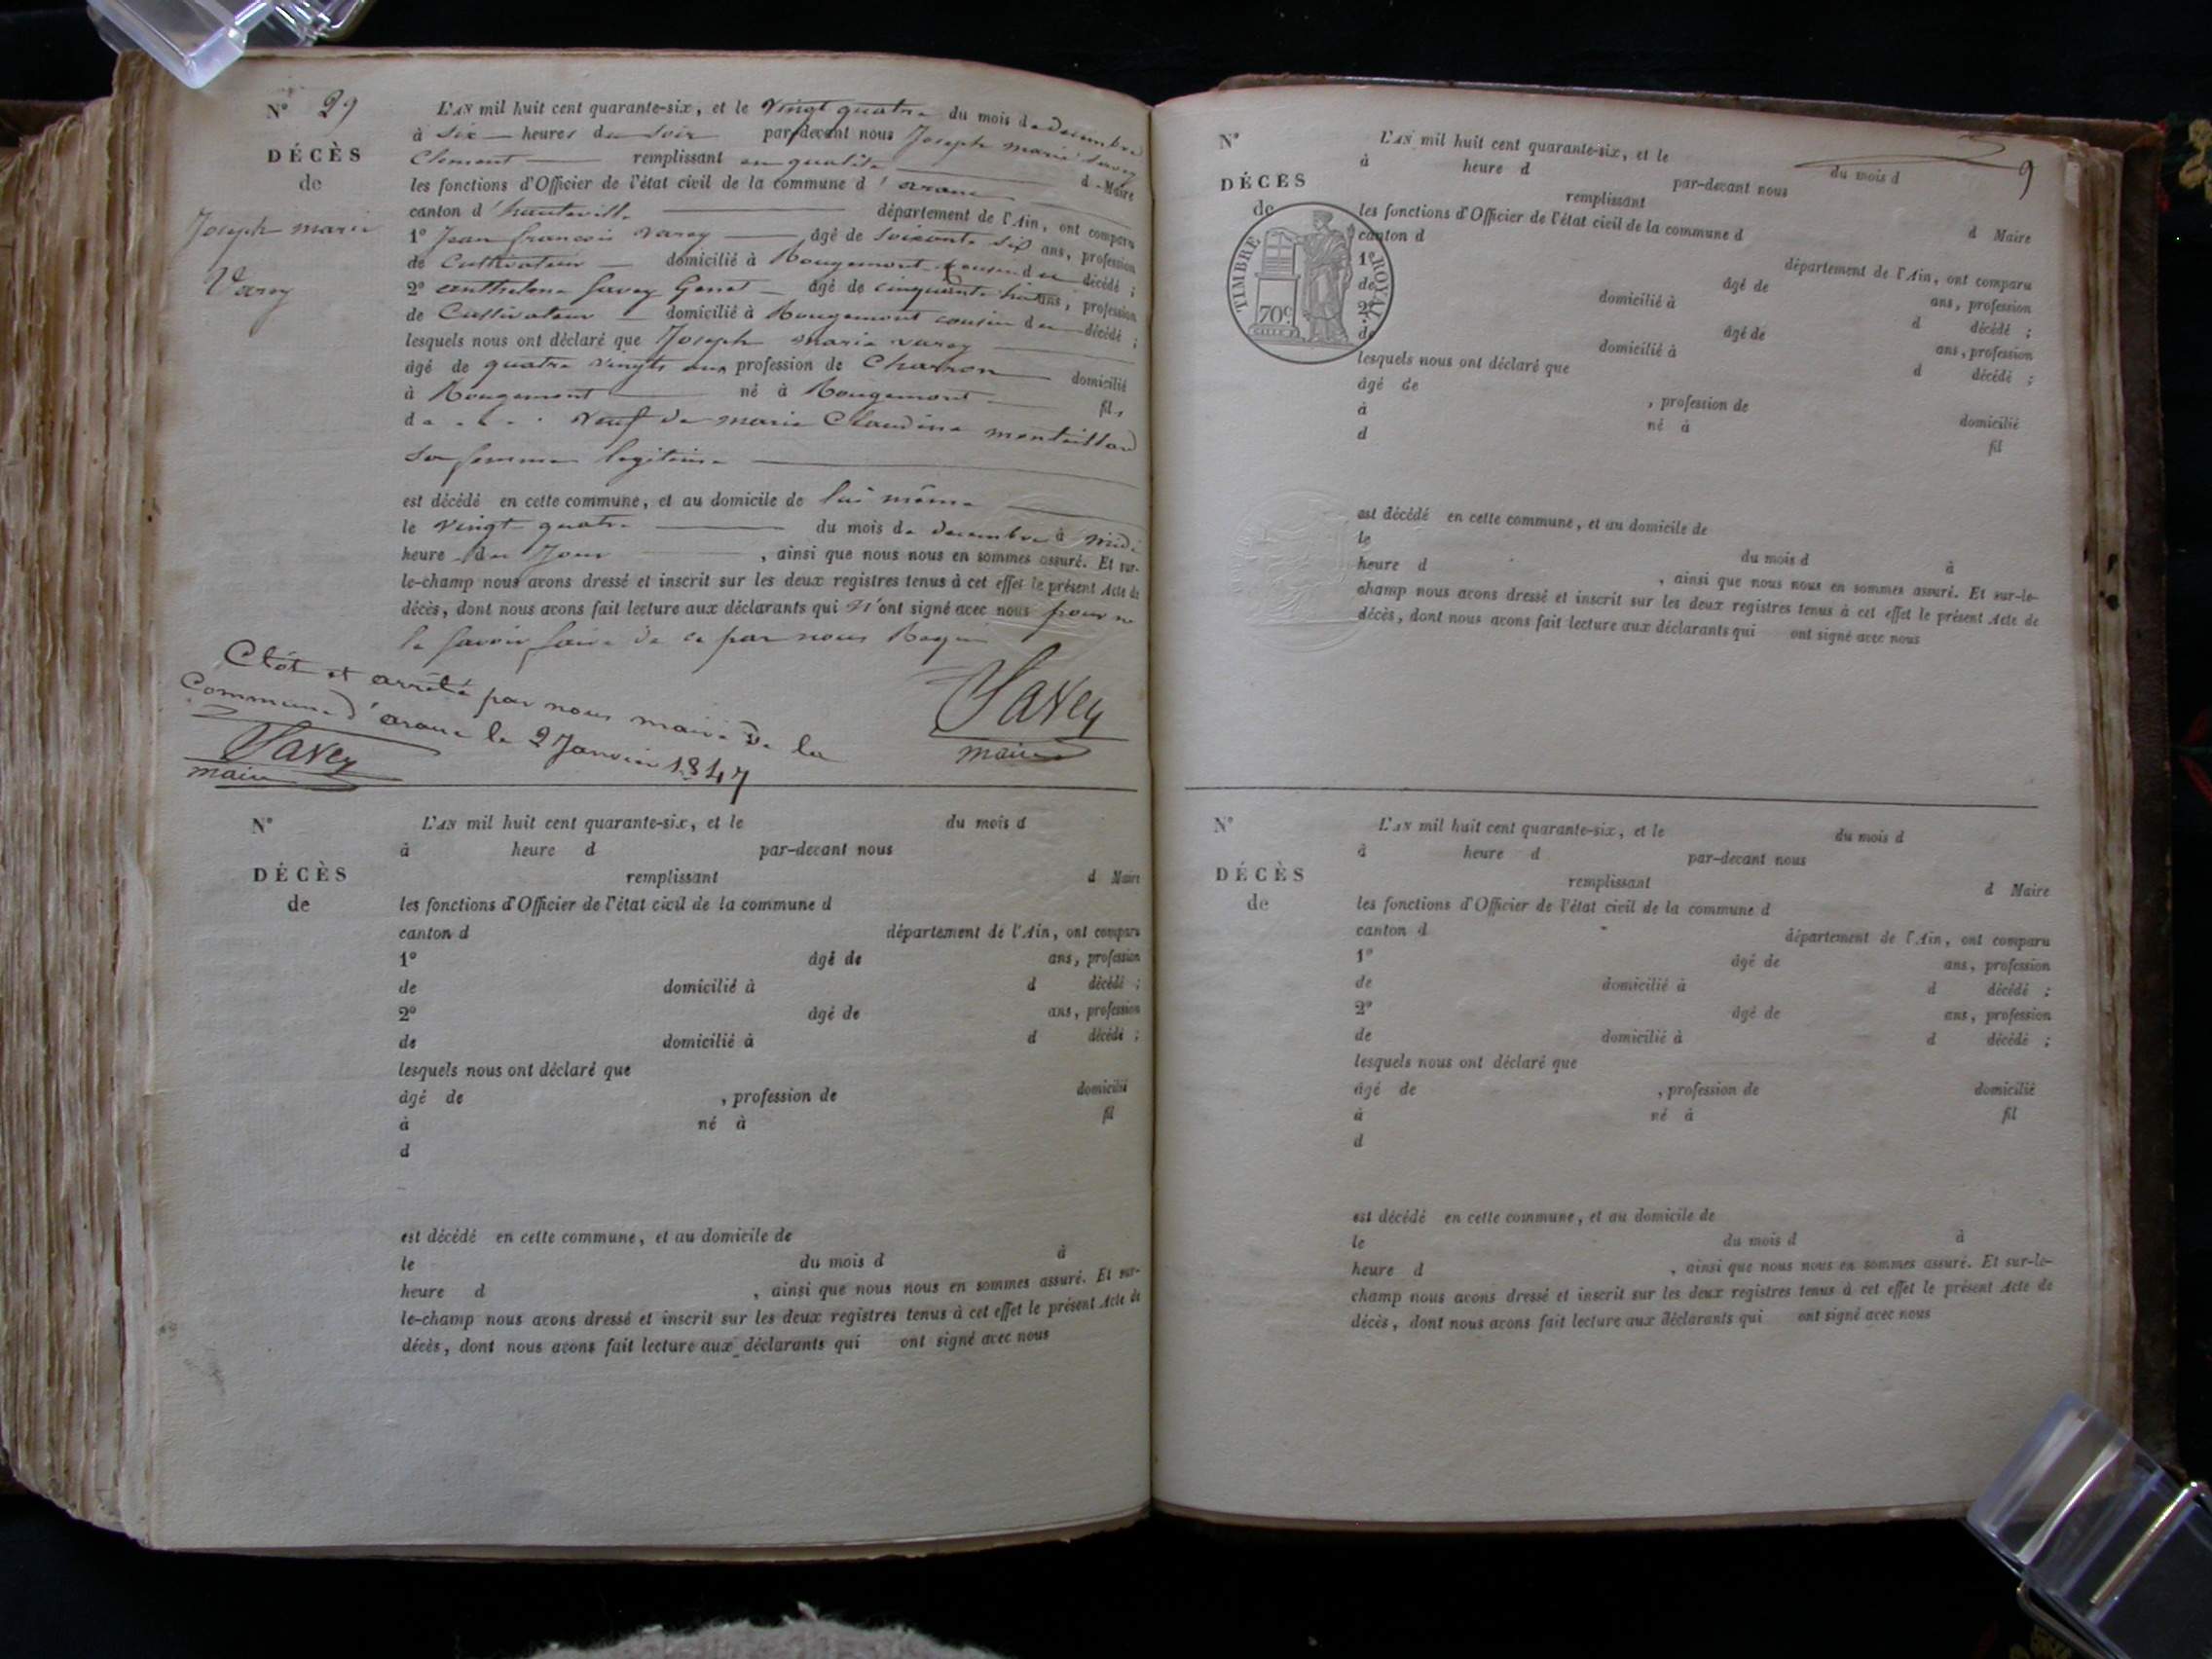 N° 29
L'AN mil huit cent quarante-six, et le vingt quatre du mois de decembre
à six heures du soir par-devant nous Joseph marie Savey
DÉCÈS
Clement remplissant en qualité d Maire
de
les fonctions d'Officier de l'état civil de la commune d' arane
Joseph marie
canton d'hauteville département de l'Ain, ont comparu
1° Jean francois varey âgé de soixante six ans, profession
de Cultivateur domicilié à Rougemont cousin du décédé ;
Varey
2° anthelme Savey Genet âgé de cinquante huit ans, profession
de Cultivateur domicilié à Rougemont cousin du décédé ;
lesquels nous ont déclaré que Joseph marie varey
âgé de quatre vingts ans profession de Charron domicilié
à Rougemont né à Rougemont fils
d . . . . veuf de marie Claudine montillard
sa femme legitime
est décédé en cette commune, et au domicile de lui même
le vingt quatre du mois de decembre à midi
heure du Jour , ainsi que nous nous en sommes assuré. Et sur-
le-champ nous avons dressé et inscrit sur les deux registres tenus à cet effet le présent Acte de
décès, dont nous avons fait lecture aux déclarants qui n'ont signé avec nous pour ne
le savoir faire de ce par nous Requis
Savey
maire
Clôt et arrêté par nous maire de la
Commune d'arane le 2 Janvier 1847
Savey
maire
N°
L'AN mil huit cent quarante-six, et le du mois d
à heure d par-devant nous
DÉCÈS
remplissant d Maire
de
les fonctions d'Officier de l'état civil de la commune d
canton d département de l'Ain, ont comparu
1° âgé de ans, profession
de domicilié à d décédé ;
2° âgé de ans, profession
de domicilié à d décédé ;
lesquels nous ont déclaré que
âgé de , profession de domicilié
à né à fil
d
est décédé en cette commune, et au domicile de
le du mois d à
heure d , ainsi que nous nous en sommes assuré. Et sur-
le-champ nous avons dressé et inscrit sur les deux registres tenus à cet effet le présent Acte de
décès, dont nous avons fait lecture aux déclarants qui ont signé avec nous
9
N°
L'AN mil huit cent quarante-six, et le du mois d
à heure d par-devant nous
DÉCÈS
remplissant d Maire
de
les fonctions d'Officier de l'état civil de la commune d
canton d département de l'Ain, ont comparu
1° âgé de ans, profession
de domicilié à d décédé ;
2° âgé de ans, profession
de domicilié à d décédé ;
TIMBRE ROYAL
70c
lesquels nous ont déclaré que
âgé de , profession de domicilié
à né à fil
d
est décédé en cette commune, et au domicile de
le du mois d à
heure d , ainsi que nous nous en sommes assuré. Et sur-le-
champ nous avons dressé et inscrit sur les deux registres tenus à cet effet le présent Acte de
décès, dont nous avons fait lecture aux déclarants qui ont signé avec nous
N°
L'AN mil huit cent quarante-six, et le du mois d
à heure d par-devant nous
DÉCÈS
remplissant d Maire
de
les fonctions d'Officier de l'état civil de la commune d
canton d département de l'Ain, ont comparu
1° âgé de ans, profession
de domicilié à d décédé ;
2° âgé de ans, profession
de domicilié à d décédé ;
lesquels nous ont déclaré que
âgé de , profession de domicilié
à né à fil
d
est décédé en cette commune, et au domicile de
le du mois d à
heure d , ainsi que nous nous en sommes assuré. Et sur-le-
champ nous avons dressé et inscrit sur les deux registres tenus à cet effet le présent Acte de
décès, dont nous avons fait lecture aux déclarants qui ont signé avec nous